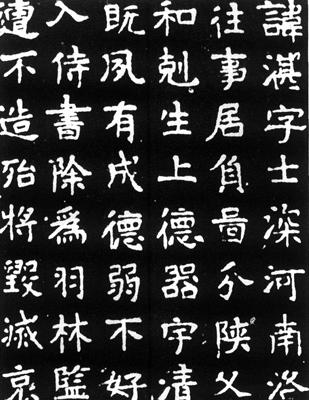 諱湛字士深河南洛
往事居負啚分陝父
和剋生上德器宇清
既夙有成德弱不好
入侍書除為羽林監
遭不造殆將毀滅哀